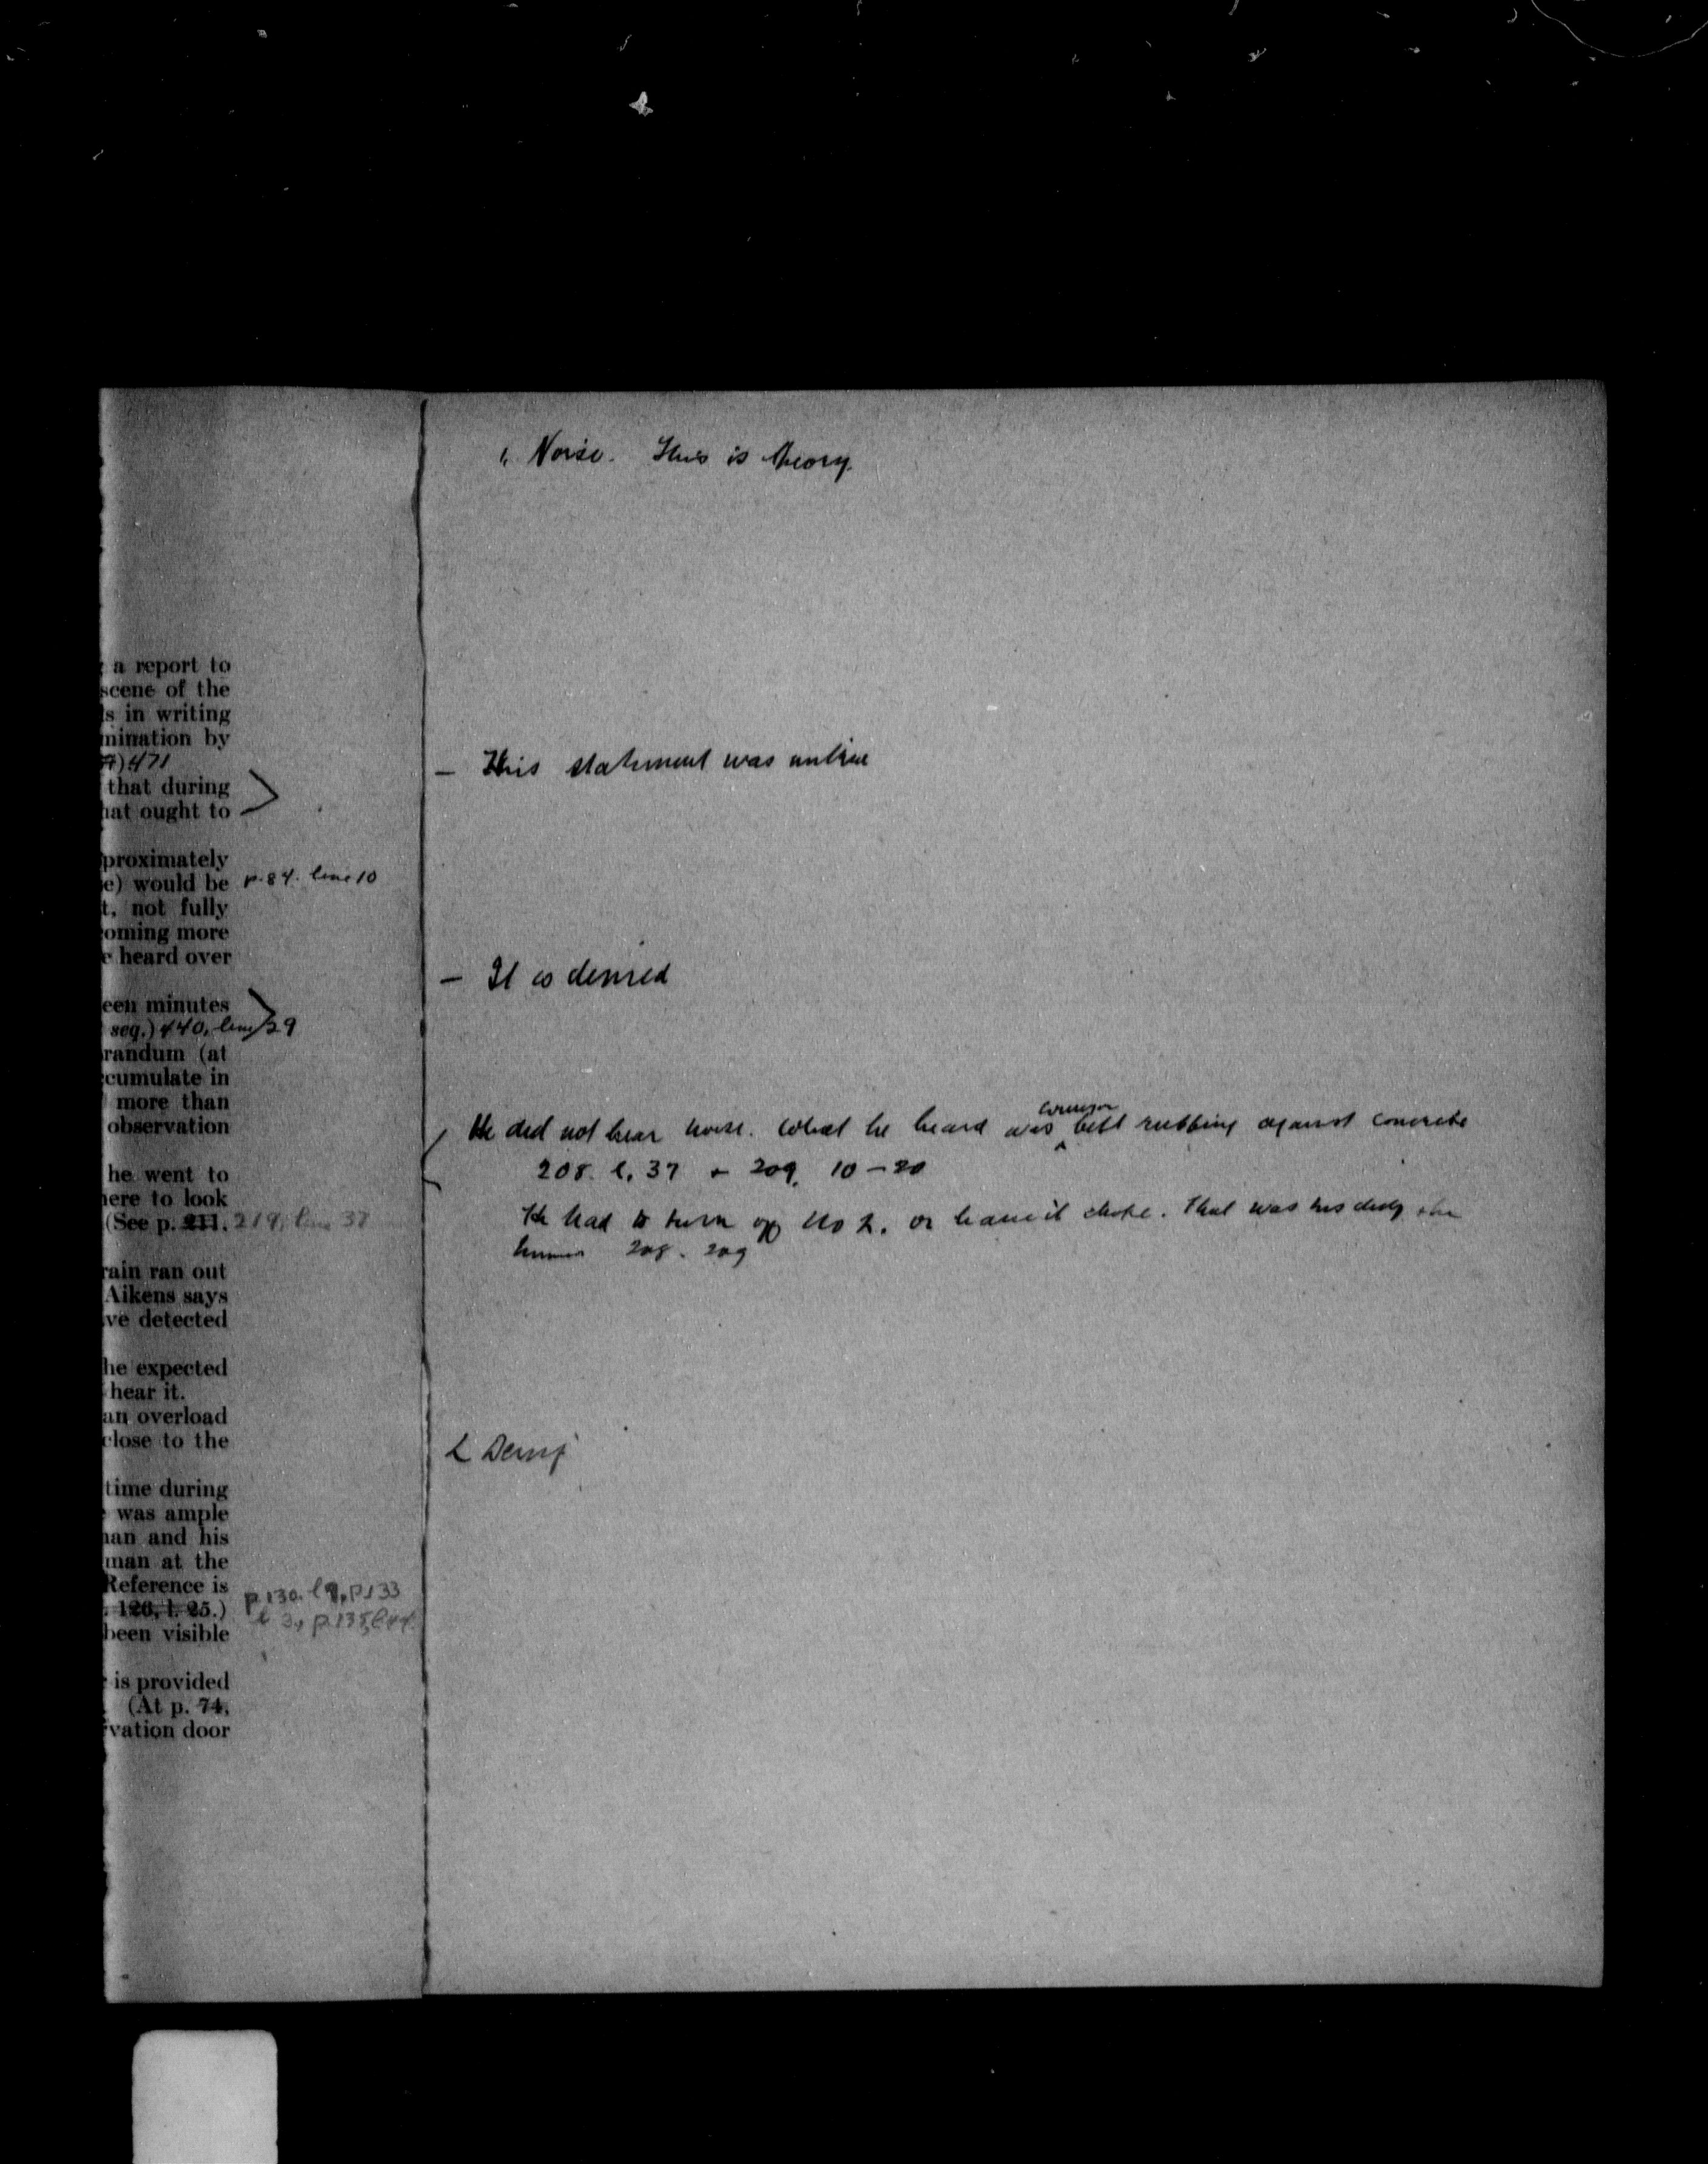 " Noise. This is theory.
a report to
scene of the
s in writing
mination by
471
that during
hat ought to
— This statement was untrue
proximately
e) would be p. 84. line 10
t, not fully
oming more
e heard over
— It is denied
een minutes
seq.) 440, line 29
randum (at
cumulate in
more than
observation
He did not hear noise. What he heard was conveyor belt rubbing against concrete
208. l. 37 + 209. 10-20
he went to
here to look
(See p. 211. 219, line 37
He had to turn off No 2. or leave it choke. That was his duty
208. 209
rain ran out
Aikens says
ve detected
he expected
hear it.
an overload
close to the
time during
was ample
man and his
man at the
Reference is p. 130. l 9, p 133
126, l. 25.) l 3, p. 135, l 44.
been visible
is provided
(At p. 74,
vation door